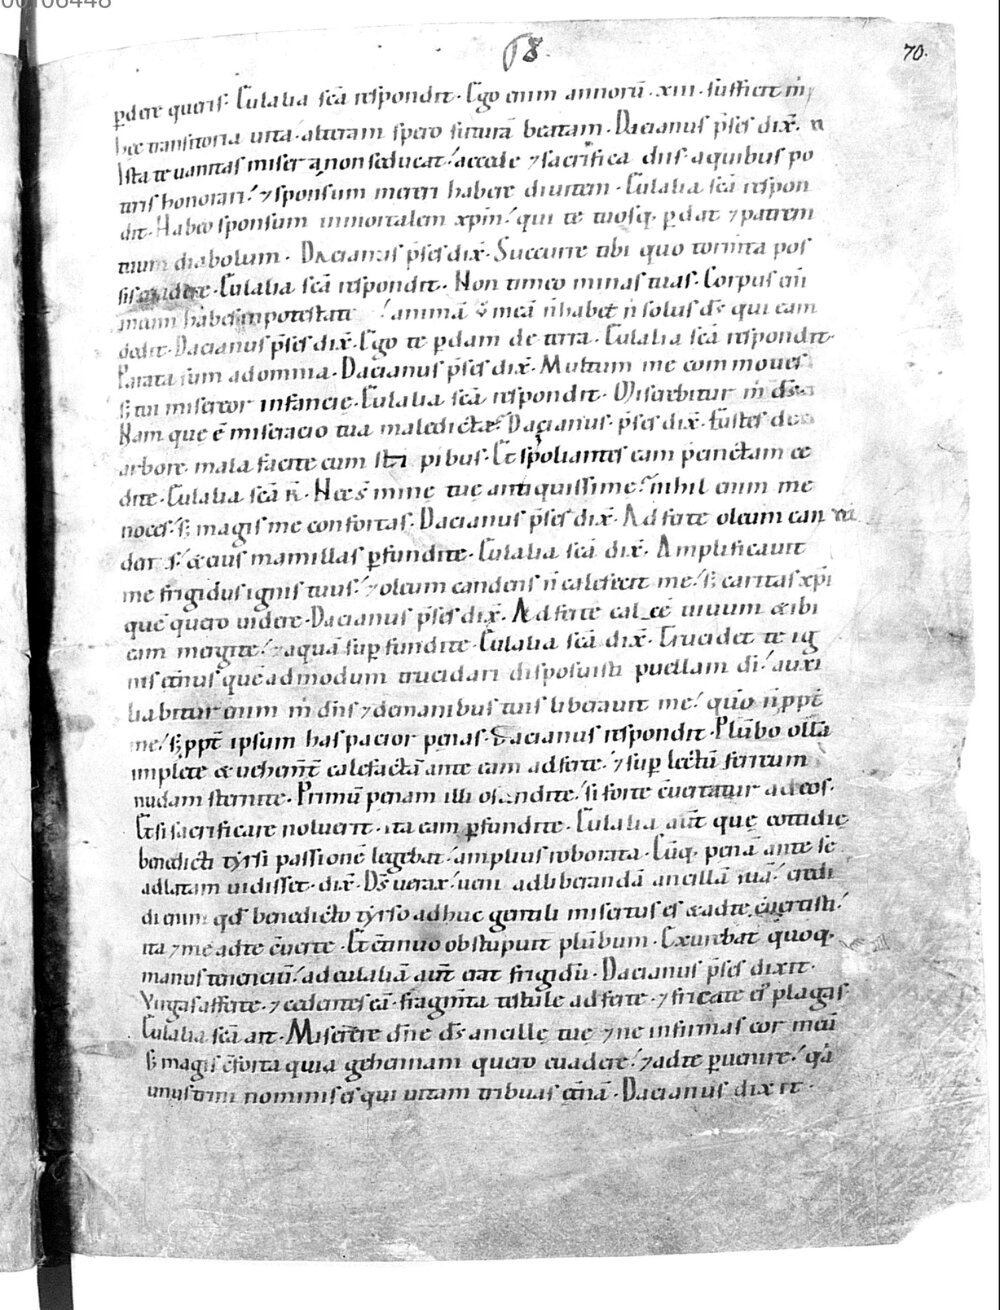 00106448
68.
70.
ꝑdere queris. Eulalia sc̄a respondit. Ego enim annorū .xiii. sufficit m̄
hęc transitoria uita. alteram spero futurā beatam. Dacianus p̄ses dix̄. N
Ista te uanitas misera non seducat. accede ⁊ sacrifica diis. a quibus po
teris honorari. ⁊ sponsum mereri habere diuitem. Eulalia sc̄a respon
dit. Habeo sponsum inmortalem xp̄m. qui te tuosq. ꝑdat ⁊ patrem
tuum diabolum. Dacianus p̄ses dix̄. Succurre tibi quo tormta pos
sis euadere. Eulalia sc̄a respondit. Non timeo minas tuas. Corpus eni
meum habes in potestate animā ū meā n̄ habet n̄ solus ds̄ qui eam
dedit. Dacianus p̄ses dix̄. Ego te ꝑdam de terra. Eulalia sc̄a respondit.
Parata sum ad omnia. Dacianus p̄ses dix̄. Multum me commoues
s; tui misereor infancie. Eulalia sc̄a respondit. Miserebitur m̄ ds̄
Nam que ē miseracio tua maledictę. Dacianus p̄ses dix̄. fustes de
arbore mala facite cum stipibus. Et spoliantes eam p̄cinctam ce
dite. Eulalia sc̄a R̄. Hee s̄ minę tuę antiquissime. nihil enim me
noces. s; magis me confortas. Dacianus p̄ses dix̄. Adferte oleum can
dens. & eius mamillas ꝑfundite. Eulalia sc̄a dix̄. Amplificauit
me frigidus ignis tuus. ⁊ oleum candens n̄ calefecit me. s; caritas xp̄i
quē quero uidere. Dacianus p̄ses dix̄. Adferte calcē uiuum & ibi
eam mergite. ⁊ aquā suꝑfundite. Eulalia sc̄a dix̄. Trucidet te ig
nis et̄nus quē admodum trucidari disposuisti puellam di. auxi
liabitur enim m̄ dn̄s ⁊ de manibus tuis liberauit me. quō n̄ ppt̄
me. s; ppt̄ ipsum has pacior penas. Dacianus respondit. Plūbo ollā
implete & uehem̄t calefactā ante eam adferte. ⁊ suꝑ lectū ferreum
nudam sternite. Primū penam illi ostendite. si forte cu̅ertatur ad eos.
Et si sacrificare noluerit. ita eam ꝑfundite. Eulalia aut̄ que cottidie
benedicti tyrsi passionē legebat. amplius roborata. Cūq. penā ante se
adlatam uidisset. dix̄. Ds̄ uerax. ueni ad liberandā ancillā tuā. credi
di enim qd̄ benedicto tyrso adhuc gentili misertus es & ad te cu̅ertisti.
ita ⁊ me ad te cu̅erte. Et ctinuo obstupuit plūbum. Exurebat quoq.
manus tenenciū. ad eulaliā aut̄ erat frigidū. Dacianus p̄ses dixit.
Virgas afferte. ⁊ cedentes eā. fragmta testule adferte. ⁊ fricate ei' plagas
Eulalia sc̄a ait. Miserere dn̄e ds̄ ancillę tuę ⁊ ne infirmas cor meū
s; magis cforta quia gehennam quero euadere. ⁊ ad te ꝑuenire. qa̅
unus trini nominis es qui uitam tribuas et̄nā. Dacianus dixit.